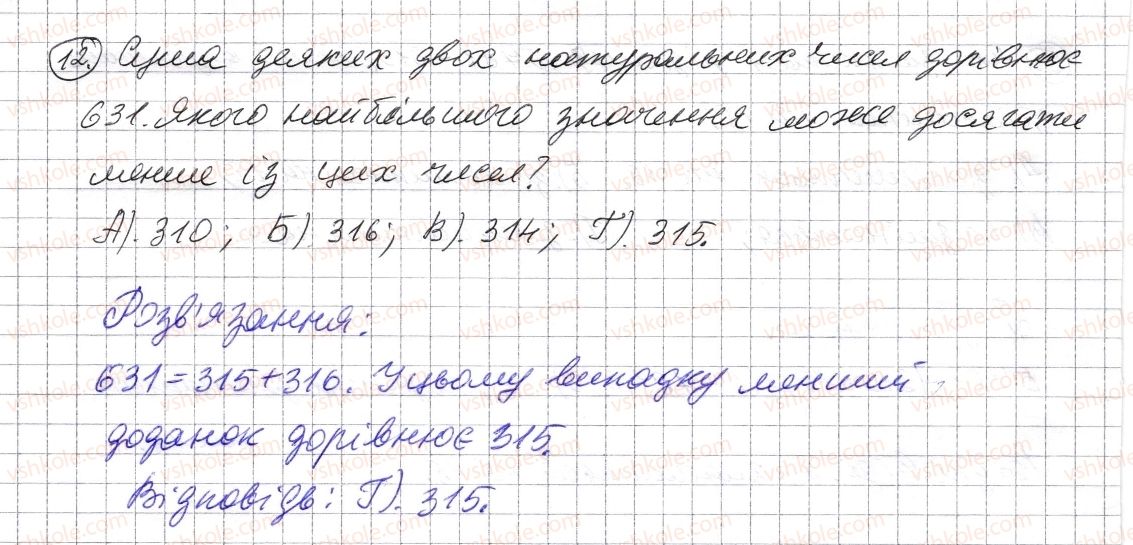 12. Сума деяких двох натуральних чисел дорівнює
631. Якого найбільшого значення може досягати
менше із цих чисел?
А). 310; Б). 316; В). 314; Г). 315.
Розв'язання:
631=315+316. У цьому випадку менший
доданок дорівнює 315.
Відповідь: Г). 315.